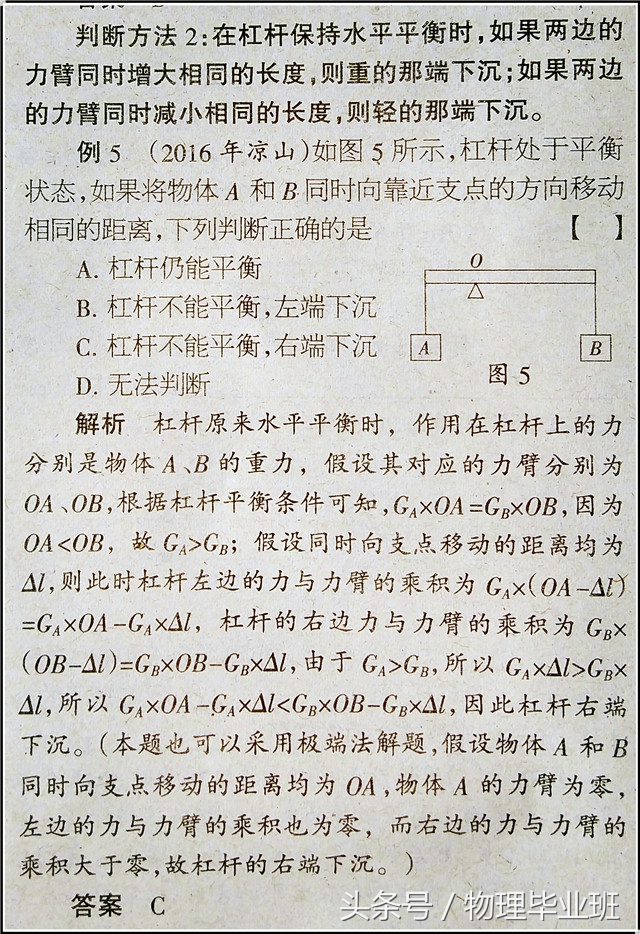 判断方法2:在杠杆保持水平平衡时,如果两边的
力臂同时增大相同的长度,则重的那端下沉;如果两边
的力臂同时减小相同的长度,则轻的那端下沉。
例5 (2016年凉山)如图5所示,杠杆处于平衡
状态,如果将物体A和B同时向靠近支点的方向移动
相同的距离,下列判断正确的是 【 】
A. 杠杆仍能平衡
B. 杠杆不能平衡,左端下沉
C. 杠杆不能平衡,右端下沉
D. 无法判断
O
A
B
图5
解析 杠杆原来水平平衡时，作用在杠杆上的力
分别是物体A、B的重力，假设其对应的力臂分别为
OA、OB,根据杠杆平衡条件可知,G_A×OA=G_B×OB,因为
OA<OB，故G_A>G_B；假设同时向支点移动的距离均为
Δl,则此时杠杆左边的力与力臂的乘积为G_A×(OA-Δl)
=G_A×OA-G_A×Δl，杠杆的右边力与力臂的乘积为G_B×
(OB-Δl)=G_B×OB-G_B×Δl,由于G_A>G_B,所以G_A×Δl>G_B×
Δl,所以G_A×OA-G_A×Δl<G_B×OB-G_B×Δl,因此杠杆右端
下沉。(本题也可以采用极端法解题,假设物体A和B
同时向支点移动的距离均为OA,物体A的力臂为零,
左边的力与力臂的乘积也为零，而右边的力与力臂的
乘积大于零,故杠杆的右端下沉。)
答案 C
头条号 / 物理毕业班